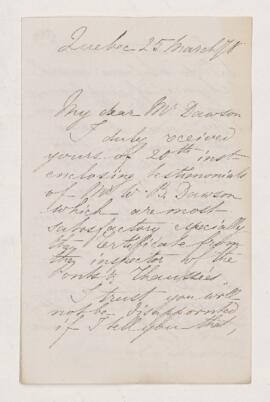 Quebec 25 March/78
My dear Mr Dawson
I duly received
yours of 20th inst
enclosing testimonials
of Mr W. B. Dawson
which are most
satisfactory especially
the certificate from
the inspector of the
Ponts & Chaussées
I trust you will
not be disappointed
if I tell you that,